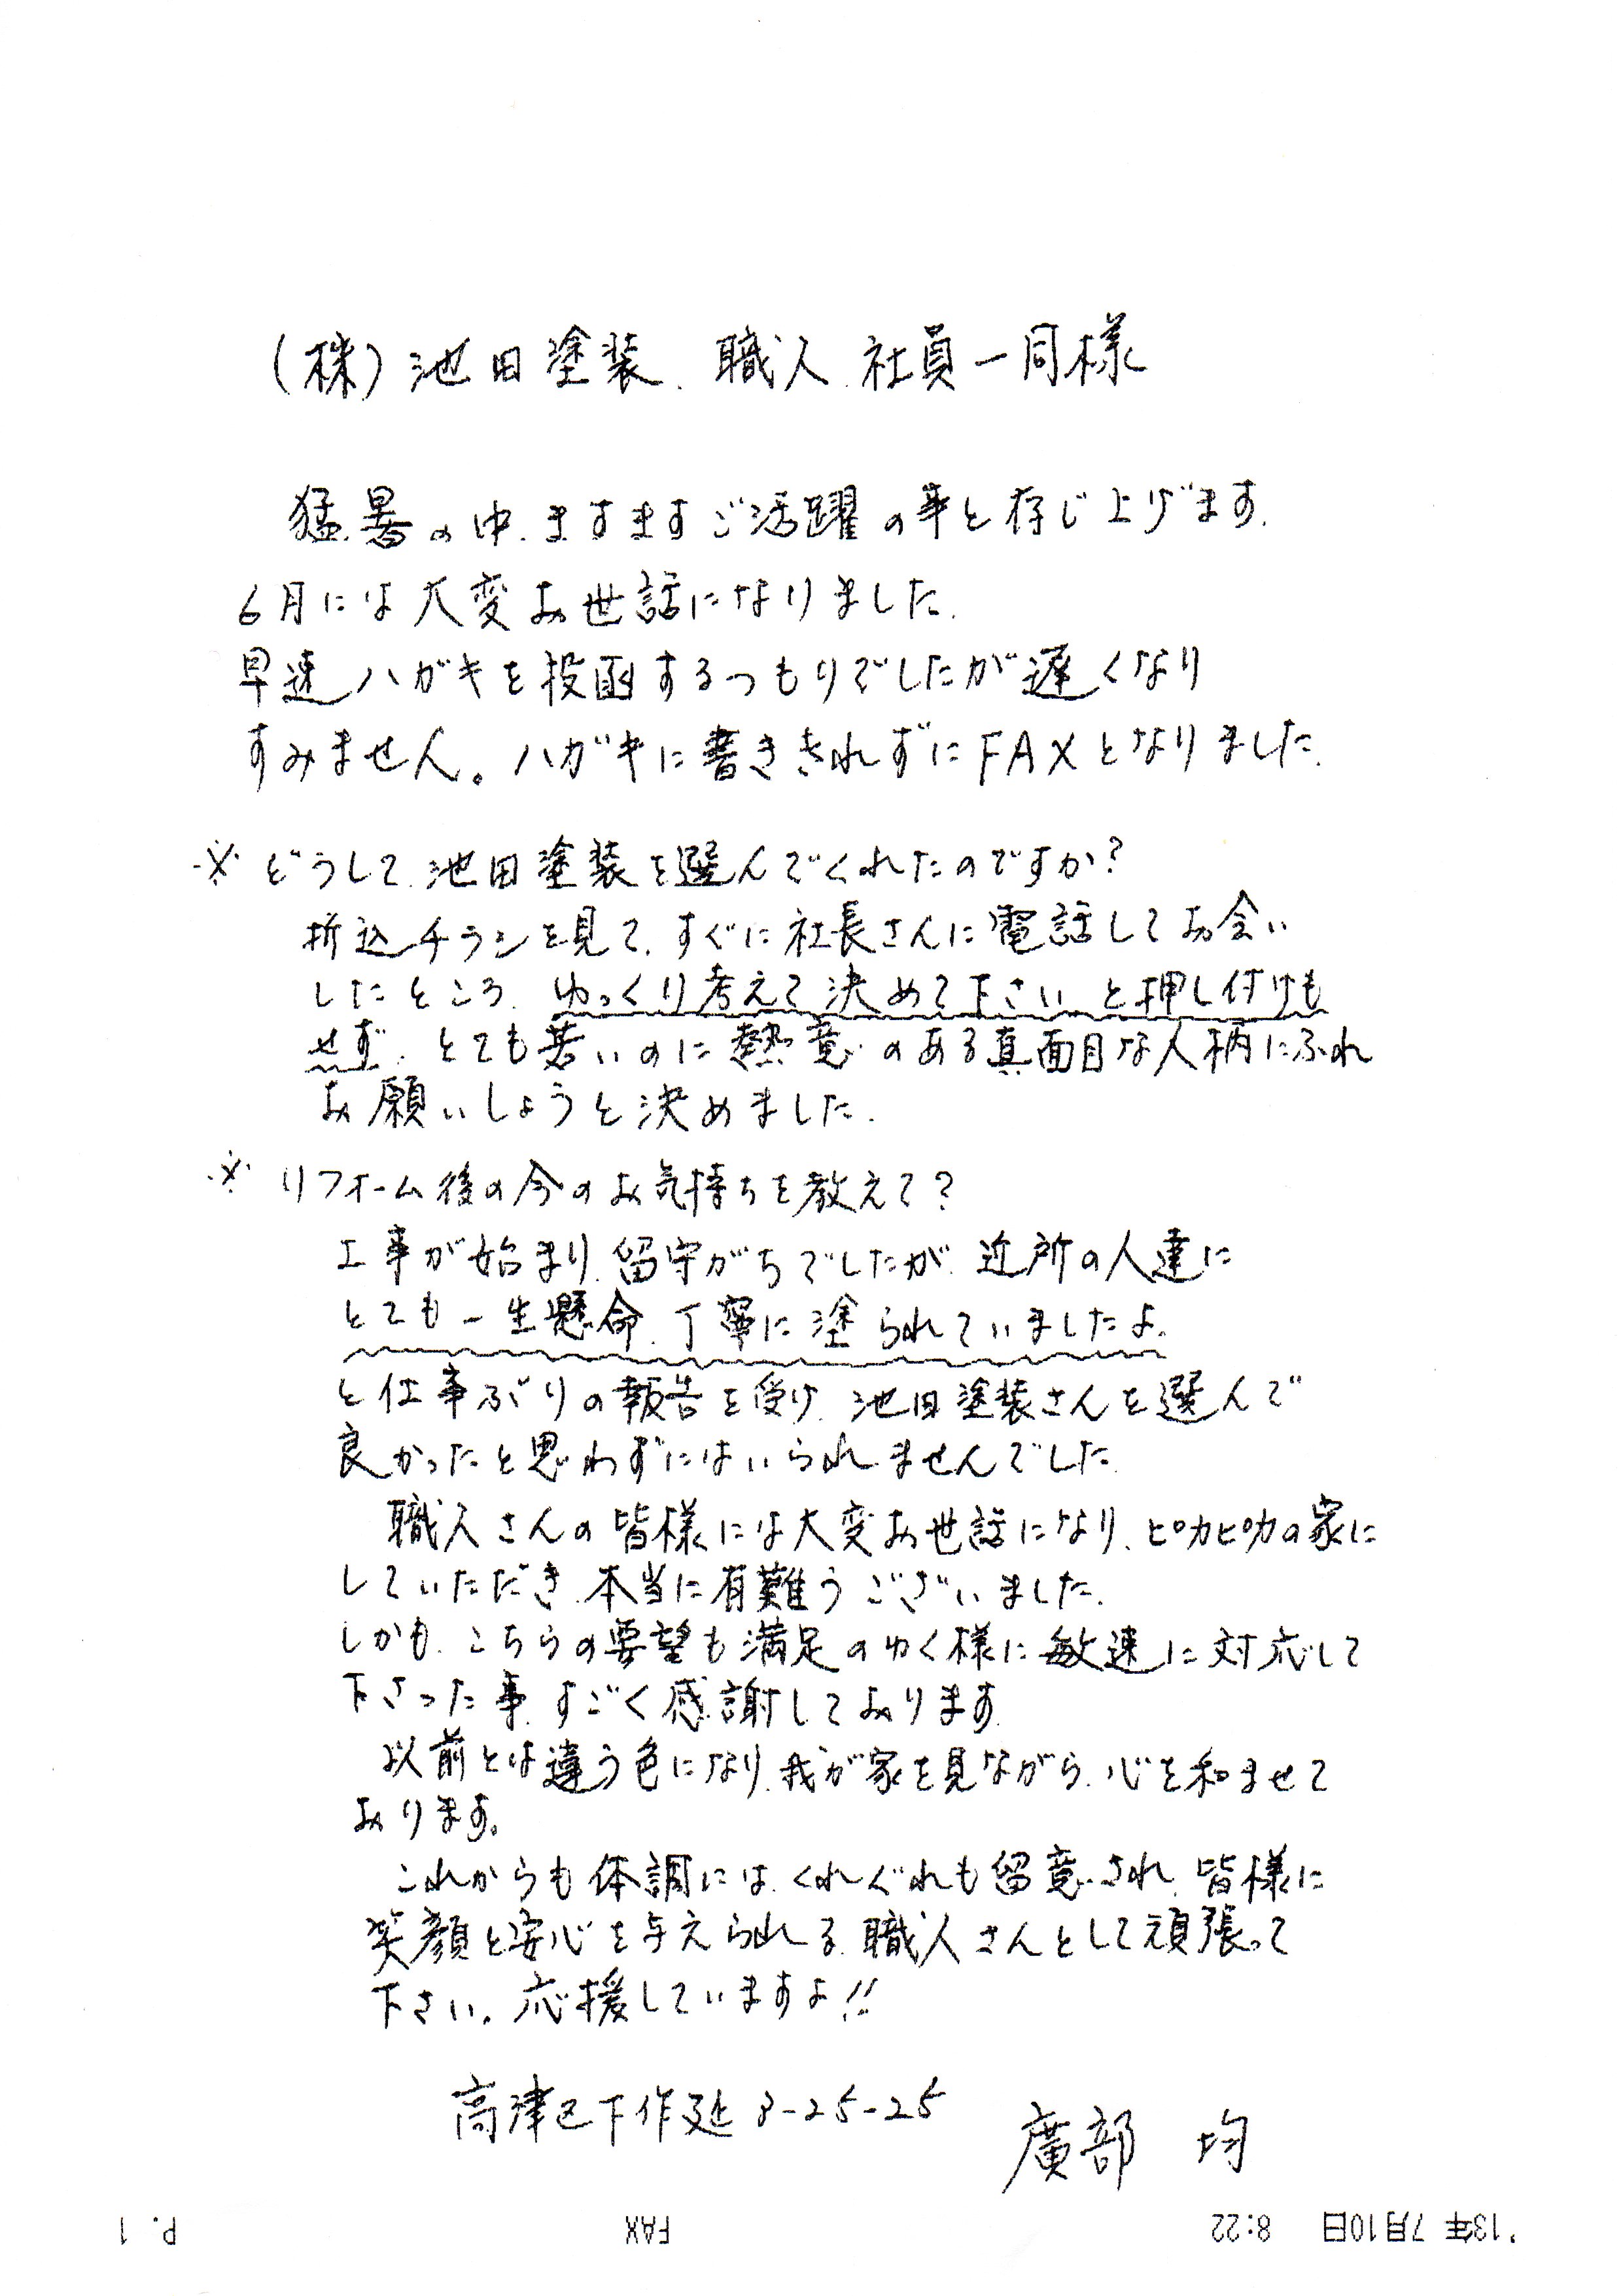 (株)池田塗装、職人、社員一同様
猛暑の中、ますますご活躍の事と存じ上げます。
6月には大変お世話になりました。
早速ハガキを投函するつもりでしたが遅くなり
すみません。ハガキに書ききれずにFAXとなりました。
※どうして、池田塗装を選んでくれたのですか?
折込チラシを見て、すぐに社長さんに電話してお会い
したところ、ゆっくり考えて決めて下さい、と押し付けも
せず、とても若いのに熱意のある真面目な人柄にふれ
お願いしようと決めました。
※リフォーム後の今のお気持ちを教えて?
工事が始まり、留守がちでしたが、近所の人達に
とても一生懸命、丁寧に塗られていましたよ。
と仕事ぶりの報告を受け、池田塗装さんを選んで
良かったと思わずにはいられませんでした。
職人さんの皆様には大変お世話になり、ピカピカの家に
していただき、本当に有難うございました。
しかも、こちらの要望も満足のゆく様に敏速に対応して
下さった事、すごく感謝しております。
以前とは違う色になり、我が家を見ながら、心を和ませて
おります。
これからも体調には、くれぐれも留意され、皆様に
笑顔と安心を与えられる、職人さんとして頑張って
下さい。応援していますよ!!
高津区下作延 3-25-25
廣部 均
'13年 7月10日 8:22 FAX P. 1